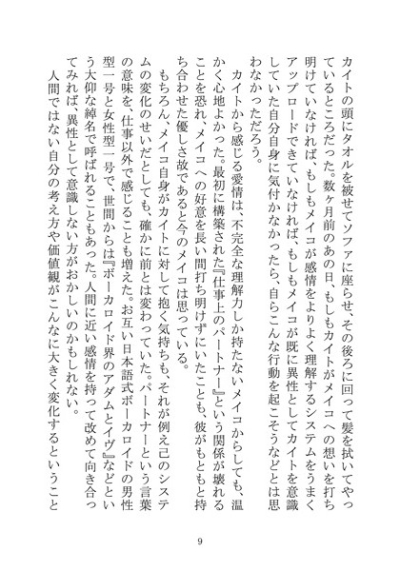 カイトの頭にタオルを被せてソファに座らせ、その後ろに回って髪を拭いてやっ
ているところだった。数ヶ月前のあの日、もしもカイトがメイコへの想いを打ち
明けていなければ、もしもメイコが感情をよりよく理解するシステムをうまく
アップロードできていなければ、もしもメイコが既に異性としてカイトを意識
していた自分自身に気付かなかったら、自らこんな行動を起こそうなどとは思
わなかっただろう。
カイトから感じる愛情は、不完全な理解力しか持たないメイコからしても、温
かく心地よかった。最初に構築された『仕事上のパートナー』という関係が壊れる
ことを恐れ、メイコへの好意を長い間打ち明けずにいたことも、彼がもともと持
ち合わせた優しさ故であると今のメイコは思っている。
もちろん、メイコ自身がカイトに対して抱く気持ちも、それが例え己のシステ
ムの変化のせいだとしても、確かに前とは変わっていた。パートナーという言葉
の意味を、仕事以外で感じることも増えた。お互い日本語式ボーカロイドの男性
型一号と女性型一号で、世間からは『ボーカロイド界のアダムとイヴ』などとい
う大仰な綽名で呼ばれることもあった。人間に近い感情を持って改めて向き合っ
てみれば、異性として意識しない方がおかしいのかもしれない。
人間ではない自分の考え方や価値観がこんなに大きく変化するということ
9